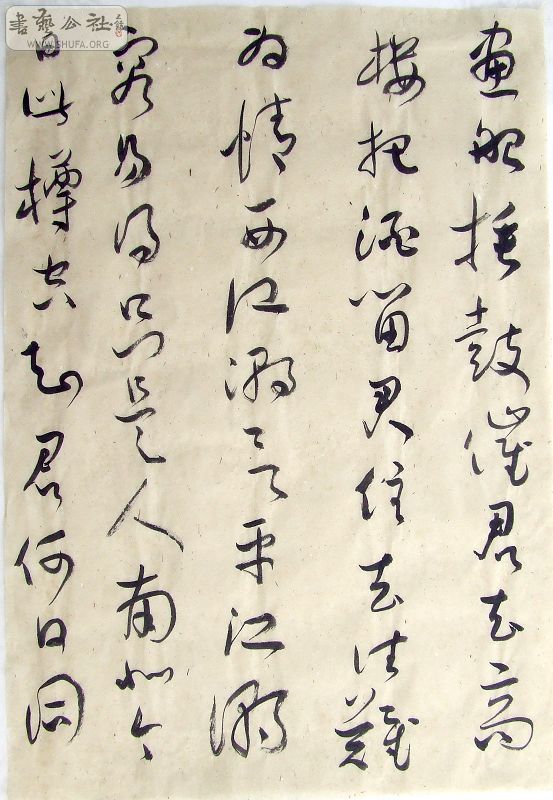 書藝公社
WWW.SHUFA.ORG
畫船捶鼓催君去高
樓把酒留君住去住難
為情西江潮欲平江潮
容易得只是人南北今
日此樽空知君何日同